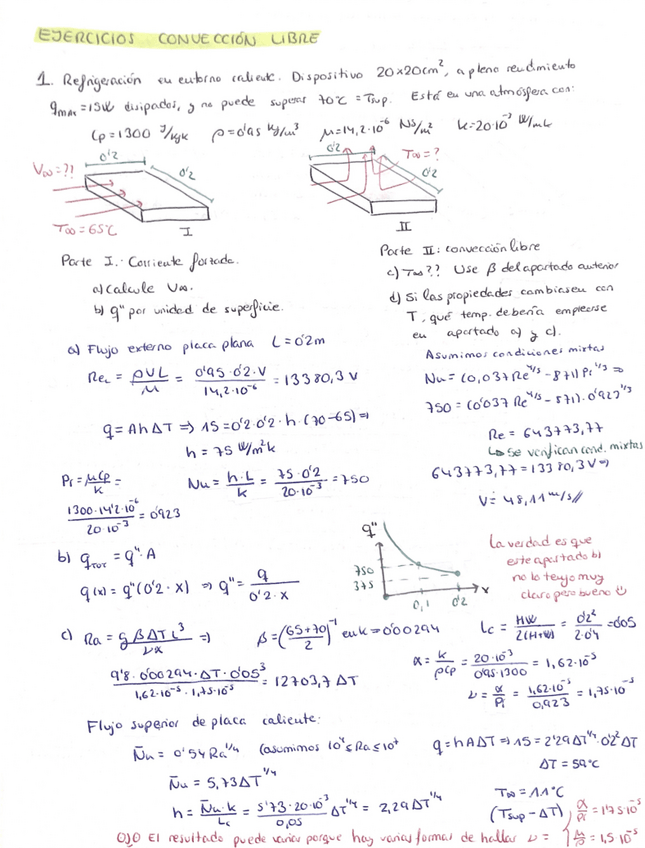 EJERCICIOS CONVECCIÓN LIBRE
1. Refrigeración en entorno caliente. Dispositivo 20x20cm², a pleno rendimiento
qmax = 15W disipados, y no puede superar 70°C = Tsup. Está en una atmósfera con:
Cp = 1300 J/kgK ρ = 0'95 kg/m³ μ = 14,2·10⁻⁶ Ns/m² k = 20·10⁻³ W/mK
0'2
V∞ = ??
0'2
T∞ = 65°C
I
0'2
T∞ = ?
0'2
II
Parte I. Corriente forzada.
a) Calcule V∞.
b) q" por unidad de superficie.
Parte II: convección libre
c) T∞?? Use β del apartado anterior
d) Si las propiedades cambiasen con
T, qué temp. debería emplearse
en apartado a) y c).
a) Flujo externo placa plana L = 0'2m
Re_L = ρVL/μ = 0'95·0'2·V/14,2·10⁻⁶ = 13380,3 V
q = AhΔT => 15 = 0'2·0'2·h·(70-65) =>
h = 75 W/m²K
Pr = μCp/k = 1300·14'2·10⁻⁶/20·10⁻³ = 0'923
Nu = h·L/k = 75·0'2/20·10⁻³ = 750
Asumimos condiciones mixtas
Nu = (0,037Re^4/5 - 871) Pr^1/3 =>
750 = (0'037 Re^4/5 - 871)·0'923^1/3
Re = 643773,77
↳ Se verifican cond. mixtas
643773,77 = 13380,3 V =>
V = 48,11 m/s //
b) q_TOT = q"·A
q(x) = q"(0'2·x) => q" = q/0'2·x
q"
750
375
0,1
0'2
x
La verdad es que
este apartado b)
no lo tengo muy
claro pero bueno
c) Ra = gβΔTL³/να =>
β = (65+70/2)⁻¹ en K = 0'00294
Lc = HW/2(H+W) = 0'2²/2·0'4 = 0'05
9'8·0'00294·ΔT·0'05³/1,62·10⁻⁵·1,75·10⁻⁵ = 12703,7 ΔT
α = k/ρCp = 20·10⁻³/0'95·1300 = 1,62·10⁻⁵
ν = α/Pr = 1,62·10⁻⁵/0,923 = 1,75·10⁻⁵
Flujo superior de placa caliente:
N̄u = 0'54Ra^1/4 (asumimos 10⁴ ≤ Ra ≤ 10⁷
N̄u = 5,73ΔT^1/4
h = N̄u·k/Lc = 5'73·20·10⁻³/0,05 ΔT^1/4 = 2,29ΔT^1/4
q = hAΔT => 15 = 2'29ΔT^1/4·0'2²ΔT
ΔT = 59°C
T∞ = 11°C
(Tsup - ΔT)
OJO El resultado puede variar porque hay varias formas de hallar ν = { α/Pr = 1'75·10⁻⁵
μ/ρ = 1,5·10⁻⁵